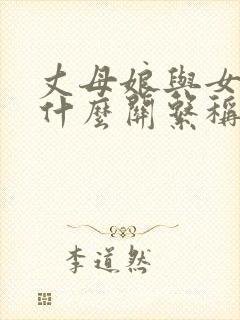 丈母娘與女
什麼關繫稱
李道然